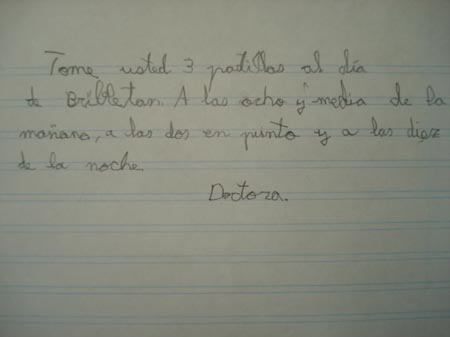 Tome usted 3 pastillas al día
de Bribletan. A las ocho y media de la
mañana, a las dos en punto y a las diez
de la noche.
Doctora.